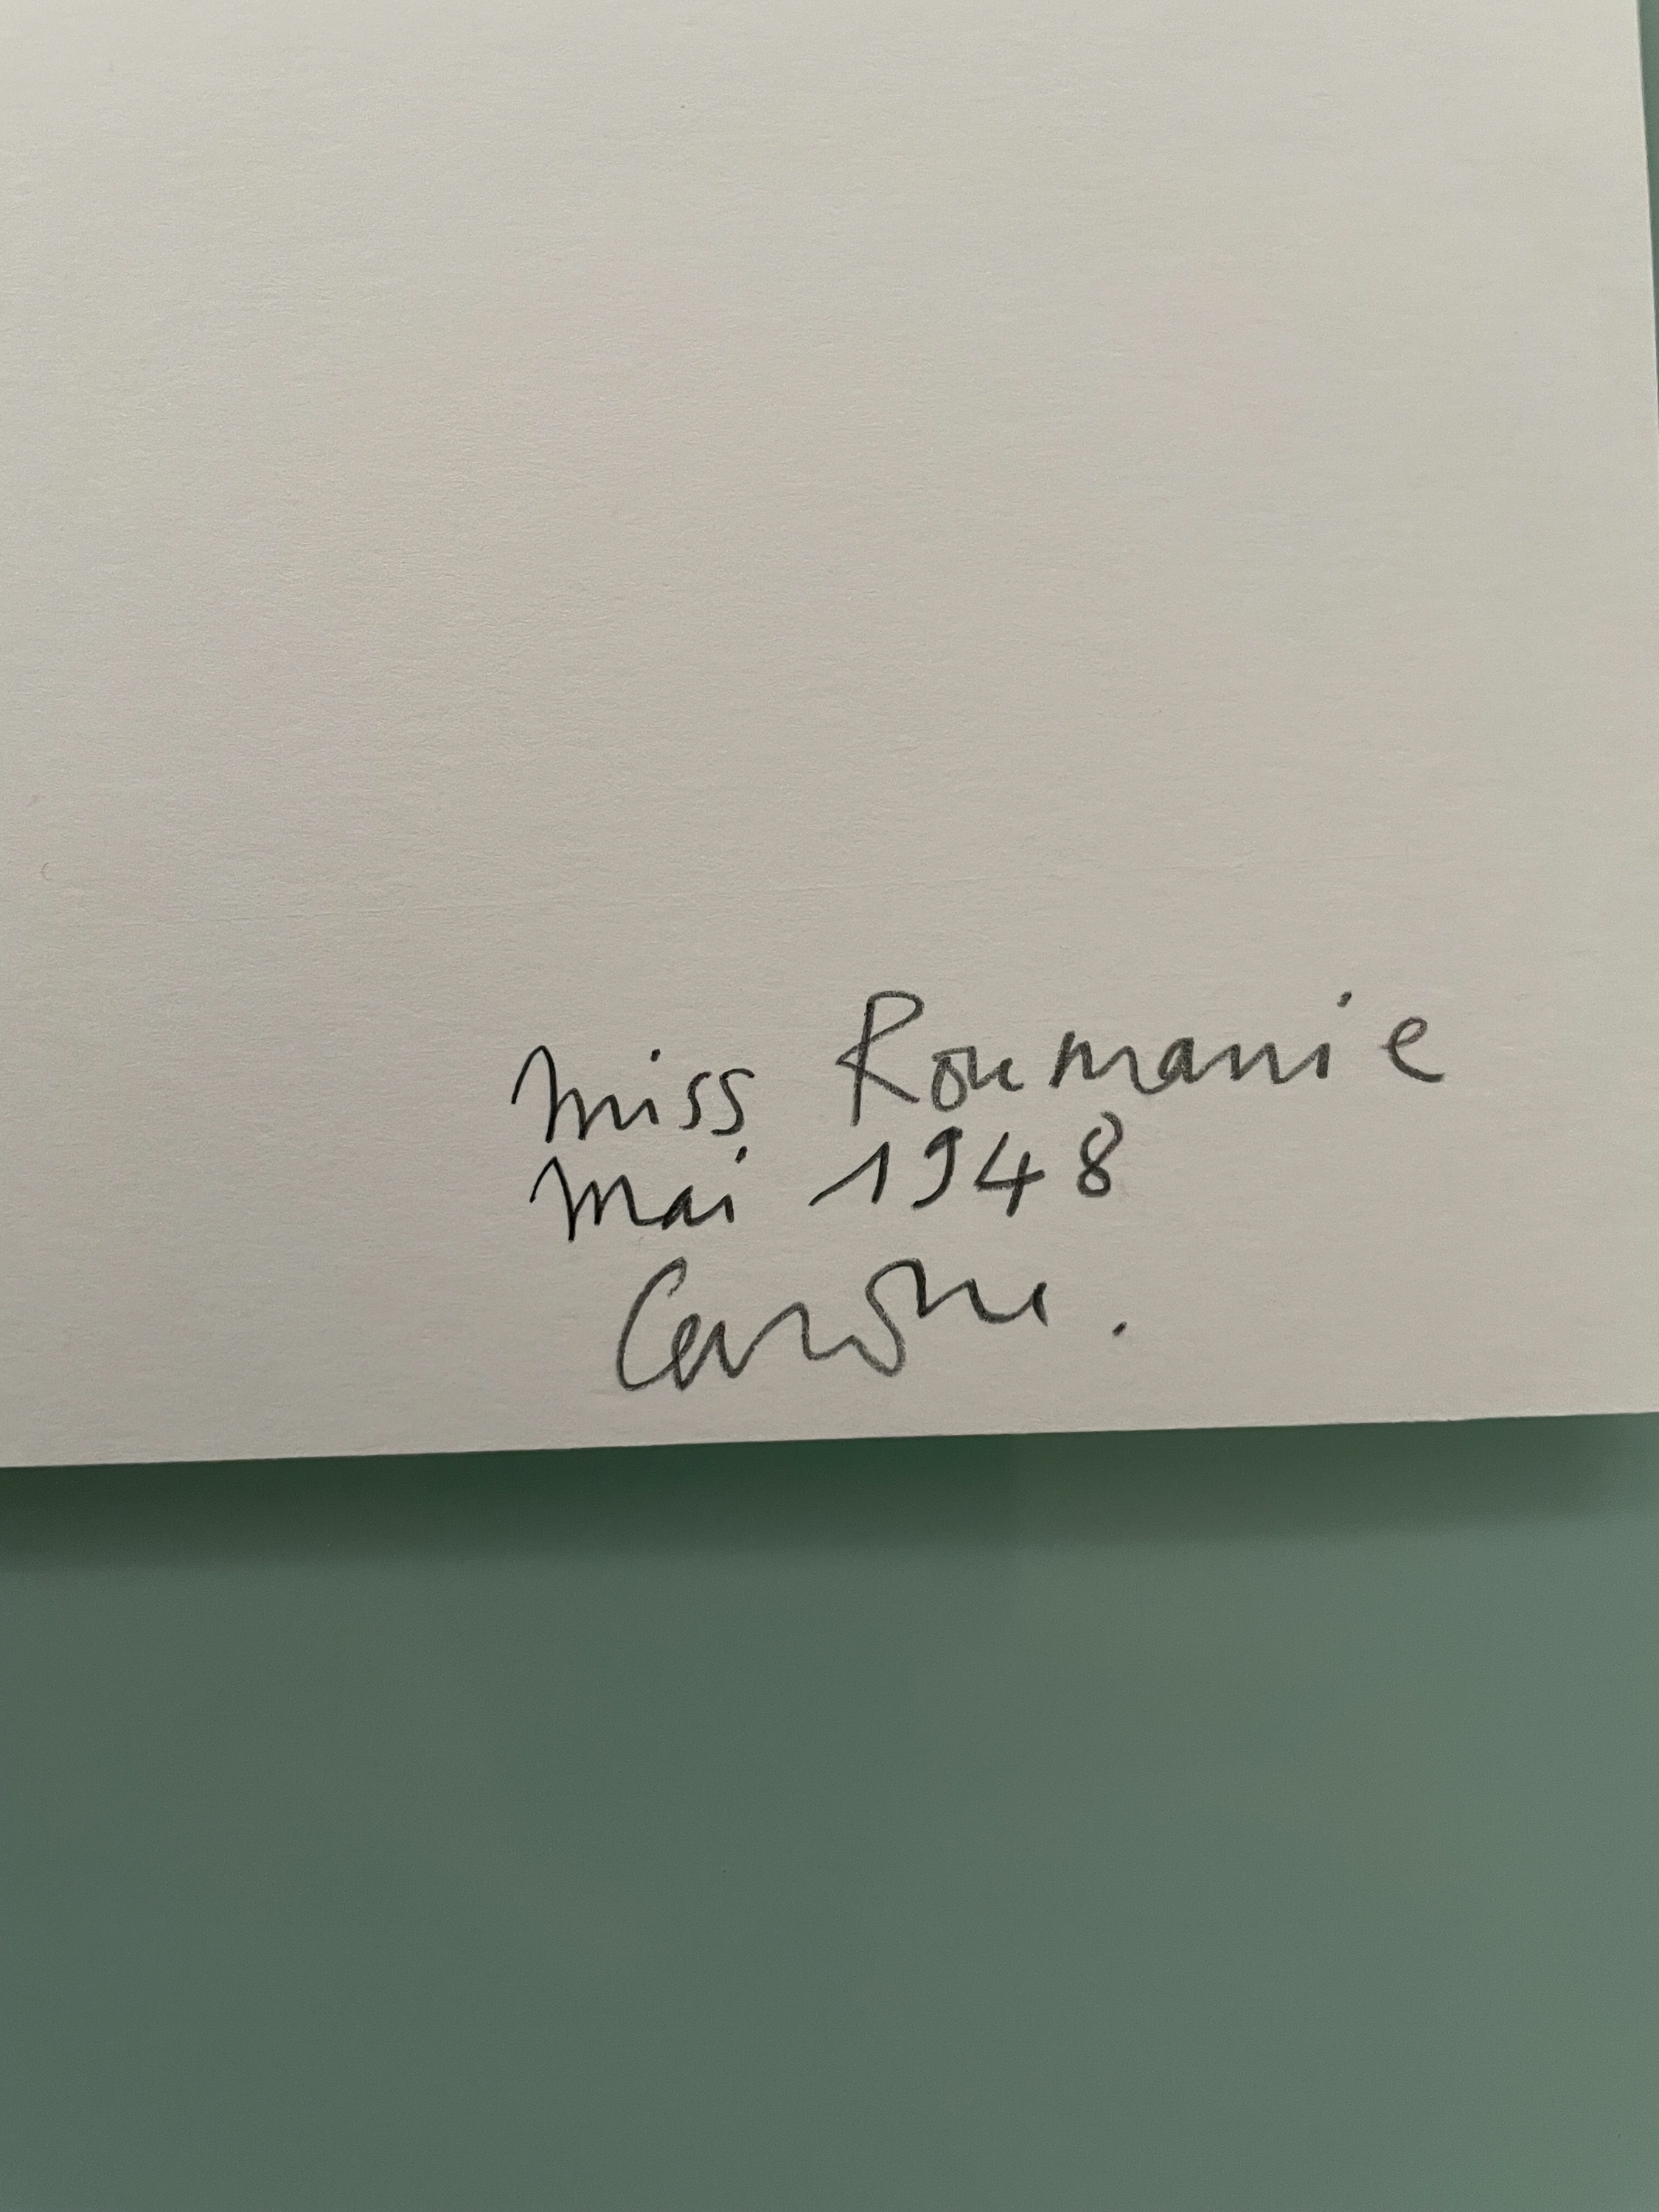 Miss Roumanie
Mai 1948